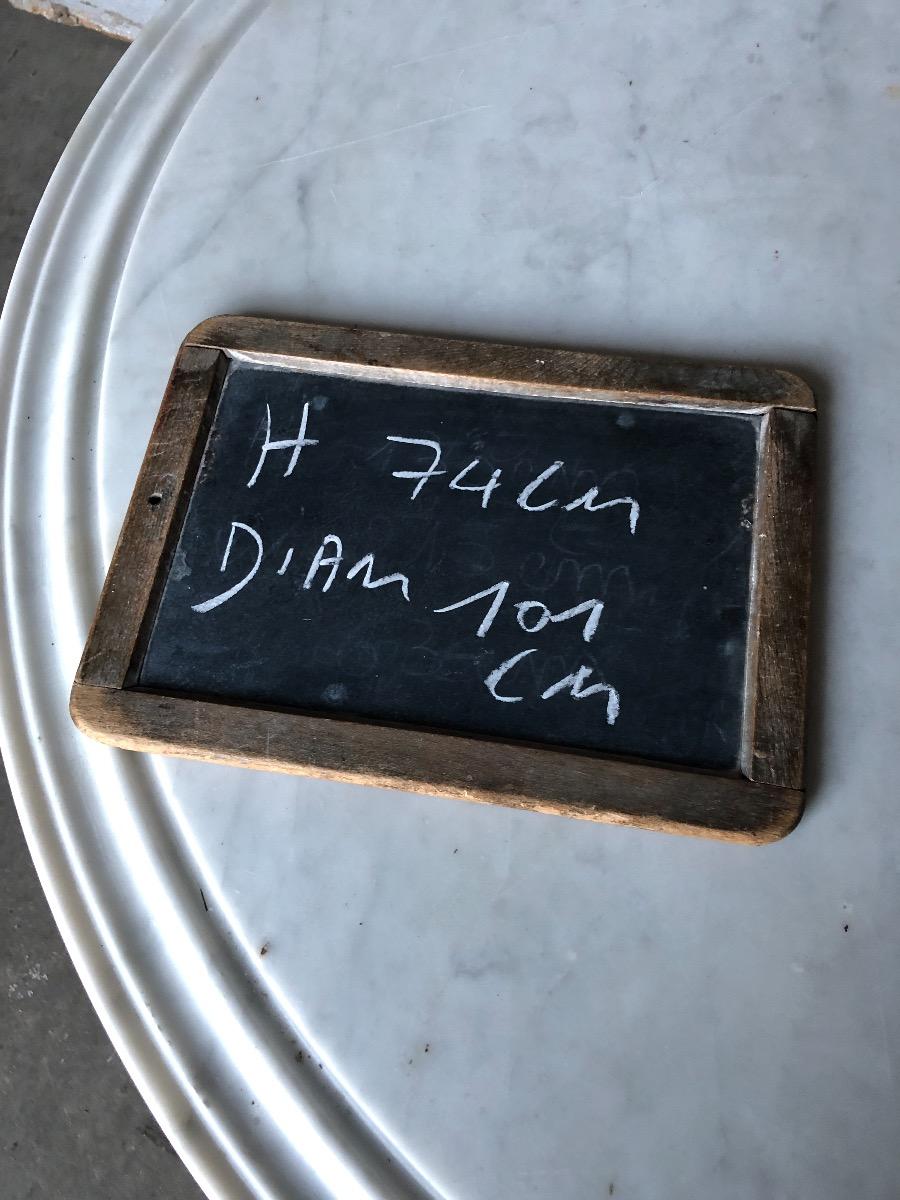 H 74cm
DIAM 101
cm